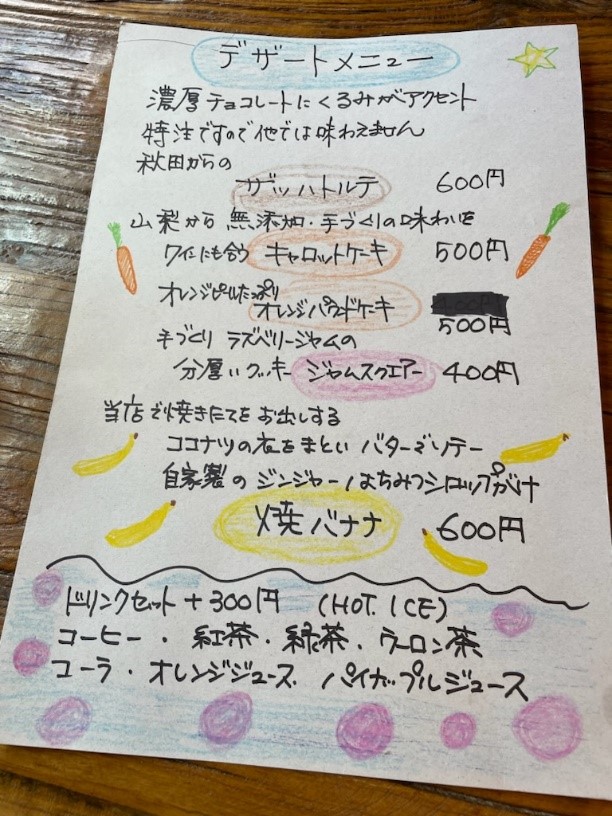 デザートメニュー
濃厚チョコレートにくるみがアクセント
特注ですので他では味わえません
秋田からの
ザッハトルテ 600円
山梨から 無添加・手づくりの味わいを
ワインにも合う キャロットケーキ 500円
オレンジピールたっぷり
オレンジパウンドケーキ 500円
手づくり ラズベリージャムの
分厚いクッキー ジャムスクエアー 400円
当店で焼きたてをお出しする
ココナツの衣をまとい バターでソテー
自家製の ジンジャーはちみつシロップがけ
焼バナナ 600円
ドリンクセット +300円 (HOT. ICE)
コーヒー・紅茶・緑茶・ウーロン茶
コーラ・オレンジジュース パイナップルジュース